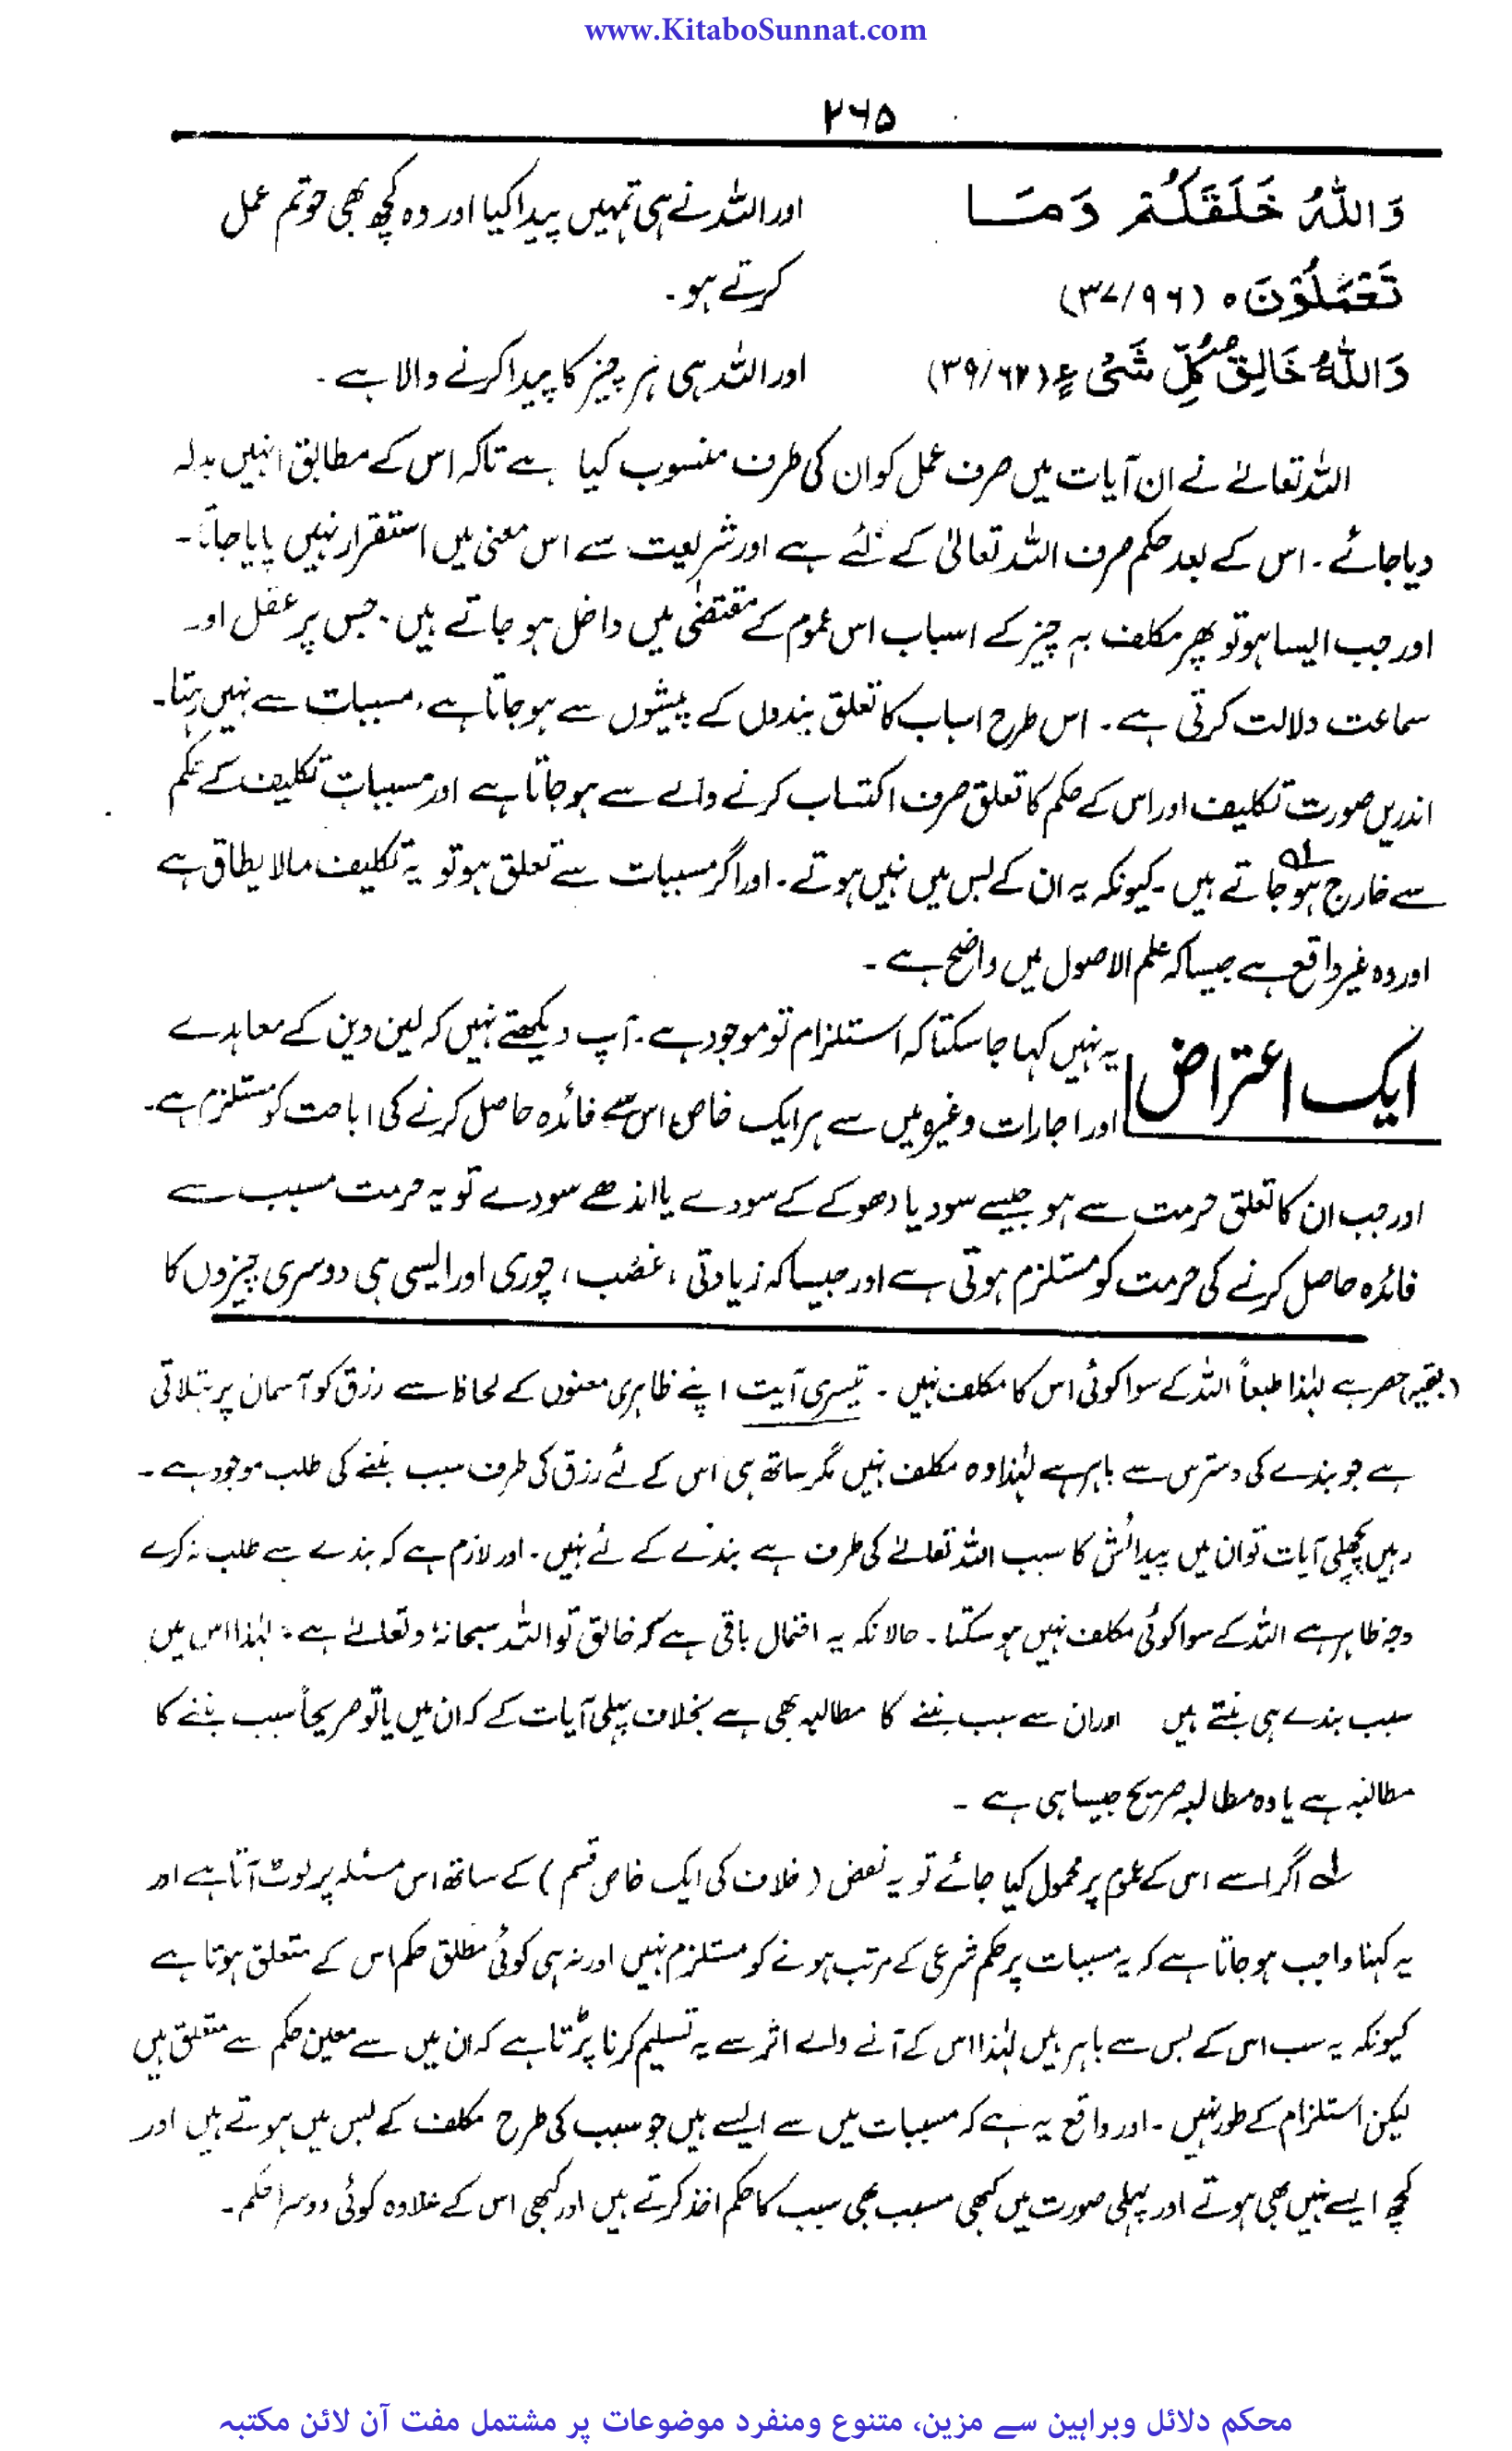 www.KitaboSunnat.com
۲۶۵
وَاللّٰهُ خَلَقَكُمْ وَمَا
اور اللہ نے ہی تمہیں پیدا کیا اور وہ کچھ بھی جو تم عمل
تَعْمَلُوْنَ ه (۳۷/۹۶)
کرتے ہو۔
وَاللّٰهُ خَالِقُ كُلِّ شَیْءٍ (۳۹/۶۲)
اور اللہ ہی ہر چیز کا پیدا کرنے والا ہے۔
اللہ تعالےٰ نے ان آیات میں صرف عمل کو ان کی طرف منسوب کیا ہے تاکہ اس کے مطابق انہیں بدلہ
دیا جائے۔ اس کے بعد حکم صرف اللہ تعالیٰ کے لئے ہے اور شریعت سے اس معنی میں استقرار نہیں پایا جاتا۔
اور جب ایسا ہو تو پھر مکلف بہ چیز کے اسباب اس عموم کے مقتضیٰ میں داخل ہو جاتے ہیں۔ جس پر عقل اور
سماعت دلالت کرتی ہے۔ اس طرح اسباب کا تعلق بندوں کے پیشوں سے ہو جاتا ہے، مسببات سے نہیں رہتا۔
اندریں صورت تکلیف اور اس کے حکم کا تعلق صرف اکتساب کرنے والے سے ہو جاتا ہے اور مسببات تکلیف کے حکم
سے خارج ہو جاتے ہیں۔ کیونکہ یہ ان کے بس میں نہیں ہوتے۔ اور اگر مسببات سے تعلق ہو تو یہ تکلیف مالا یطاق ہے
اور وہ غیر واقع ہے جیسا کہ علم الاصول میں واضح ہے۔
ایک اعتراض
یہ نہیں کہا جا سکتا کہ استلزام تو موجود ہے۔ آپ دیکھتے نہیں کہ لین دین کے معاہدے
اور اجارات وغیرہ میں سے ہر ایک خاص اس سے فائدہ حاصل کرنے کی اباحت کو مستلزم ہے۔
اور جب ان کا تعلق حرمت سے ہو جیسے سود یا دھوکے کے سودے یا اندھے سودے تو یہ حرمت مسبب سے
فائدہ حاصل کرنے کی حرمت کو مستلزم ہوتی ہے اور جیسا کہ زیادتی، غضب، چوری اور ایسی ہی دوسری چیزوں کا
(بقیہ) حصر ہے لہٰذا طبعاً اللہ کے سوا کوئی اس کا مکلف نہیں۔ تیسری آیت اپنے ظاہری معنوں کے لحاظ سے رزق کو آسمان پر بتلاتی
ہے جو بندے کی دسترس سے باہر ہے لہٰذا وہ مکلف نہیں مگر ساتھ ہی اس کے لئے رزق کی طرف سبب بننے کی طلب موجود ہے۔
رہیں پچھلی آیات تو ان میں پیدائش کا سبب اللہ تعالےٰ کی طرف ہے بندے کے لئے نہیں۔ اور لازم ہے کہ بندے سے طلب نہ کرے
وجہ ظاہر ہے اللہ کے سوا کوئی مکلف نہیں ہو سکتا۔ حالانکہ یہ احتمال باقی ہے کہ خالق تو اللہ سبحانہٗ وتعالےٰ ہے، لہٰذا اس میں
سبب بندے ہی بنتے ہیں اور ان سے سبب بننے کا مطالبہ بھی ہے بخلاف پہلی آیات کے کہ ان میں یا تو صریحاً سبب بننے کا
مطالبہ ہے یا وہ مطالبہ صریح جیسا ہی ہے۔
لہ اگر اسے اس کے عموم پر محمول کیا جائے تو یہ نعض (خلاف کی ایک خاص قسم) کے ساتھ اس مسئلہ پر لوٹ آتا ہے اور
یہ کہنا واجب ہو جاتا ہے کہ یہ مسببات پر حکم شرعی کے مرتب ہونے کو مستلزم نہیں اور نہ ہی کوئی مطلق حکم اس کے متعلق ہوتا ہے
کیونکہ یہ سب اس کے بس سے باہر ہیں لہٰذا اس کے آنے والے اثر سے یہ تسلیم کرنا پڑتا ہے کہ ان میں سے معین حکم سے متعلق ہیں
لیکن استلزام کے طور نہیں۔ اور واقع یہ ہے کہ مسببات میں سے ایسے ہیں جو سبب کی طرح مکلف کے بس میں ہوتے ہیں اور
کچھ ایسے نہیں بھی ہوتے اور پہلی صورت میں کبھی مسبب بھی سبب کا حکم اخذ کرتے ہیں اور کبھی اس کے علاوہ کوئی دوسرا حکم۔
محکم دلائل وبراہین سے مزین، متنوع ومنفرد موضوعات پر مشتمل مفت آن لائن مکتبہ